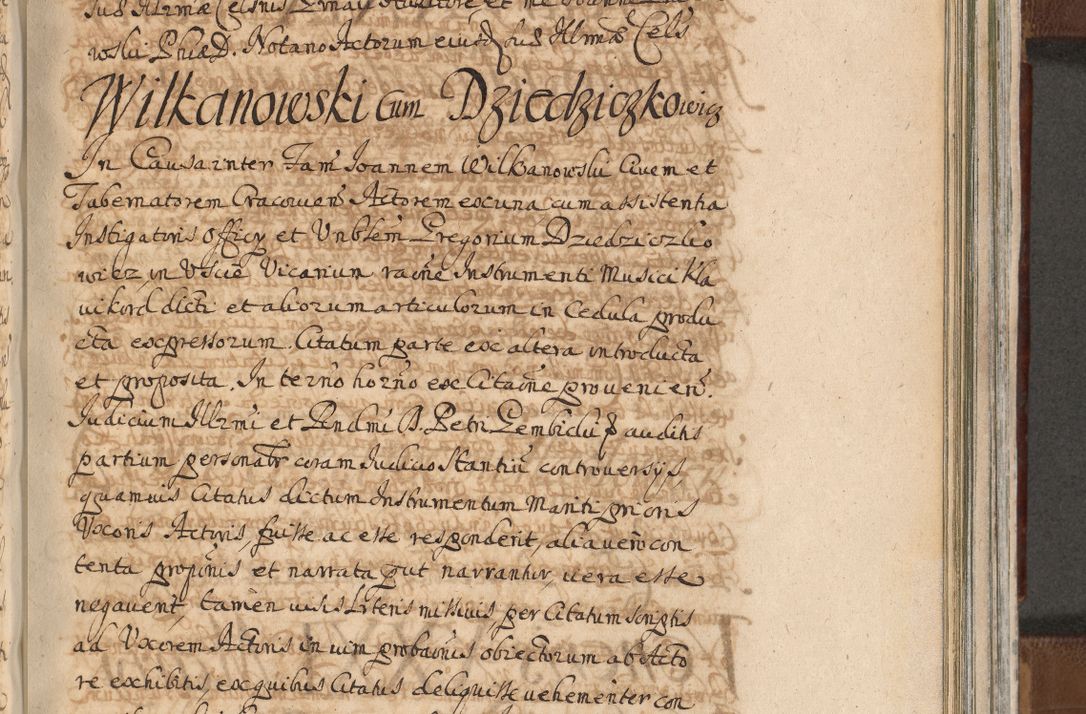 wskii PhiaeD. Notario Actorum eiusd Suae Illrmae Cels
Wilkanowski cum Dziedziczkowicz
In Causa inter Fam Ioannem Wilkanowski Ciuem et
Tabernatorem Cracouien Actorem ex una cum assistentia
Instigatoris Officy et Vnblem Gregorium Dziedziczko
wicz in Vscie Vicarium raone Instrumenti Musici Kla
uikord dicti et aliorum articulorum in Cedula produ
cta expressorum Citatum parte ex altera introducta
et proposita. In termo horno ex Citaone prouenien.
Iudicium Illrmi et Rendmi D. Petri Gembicki P auditis
partium personalr coram Iudicio stantiu controuersys,
quamuis Citatus dictum Instrumentum Mariti prioris
Vxoris Actoris, fuisse ac esse responderit, alia vero con
tenta proponis et narrata put narrantur, vera esse
negauerit, tamen visis Literis missiuis per Citatum scriptis
ad Vxorem Actoris in vim probaonis obiectorum ab Acto
re exhibitis, ex quibus Citatus deliquisse vehementer con